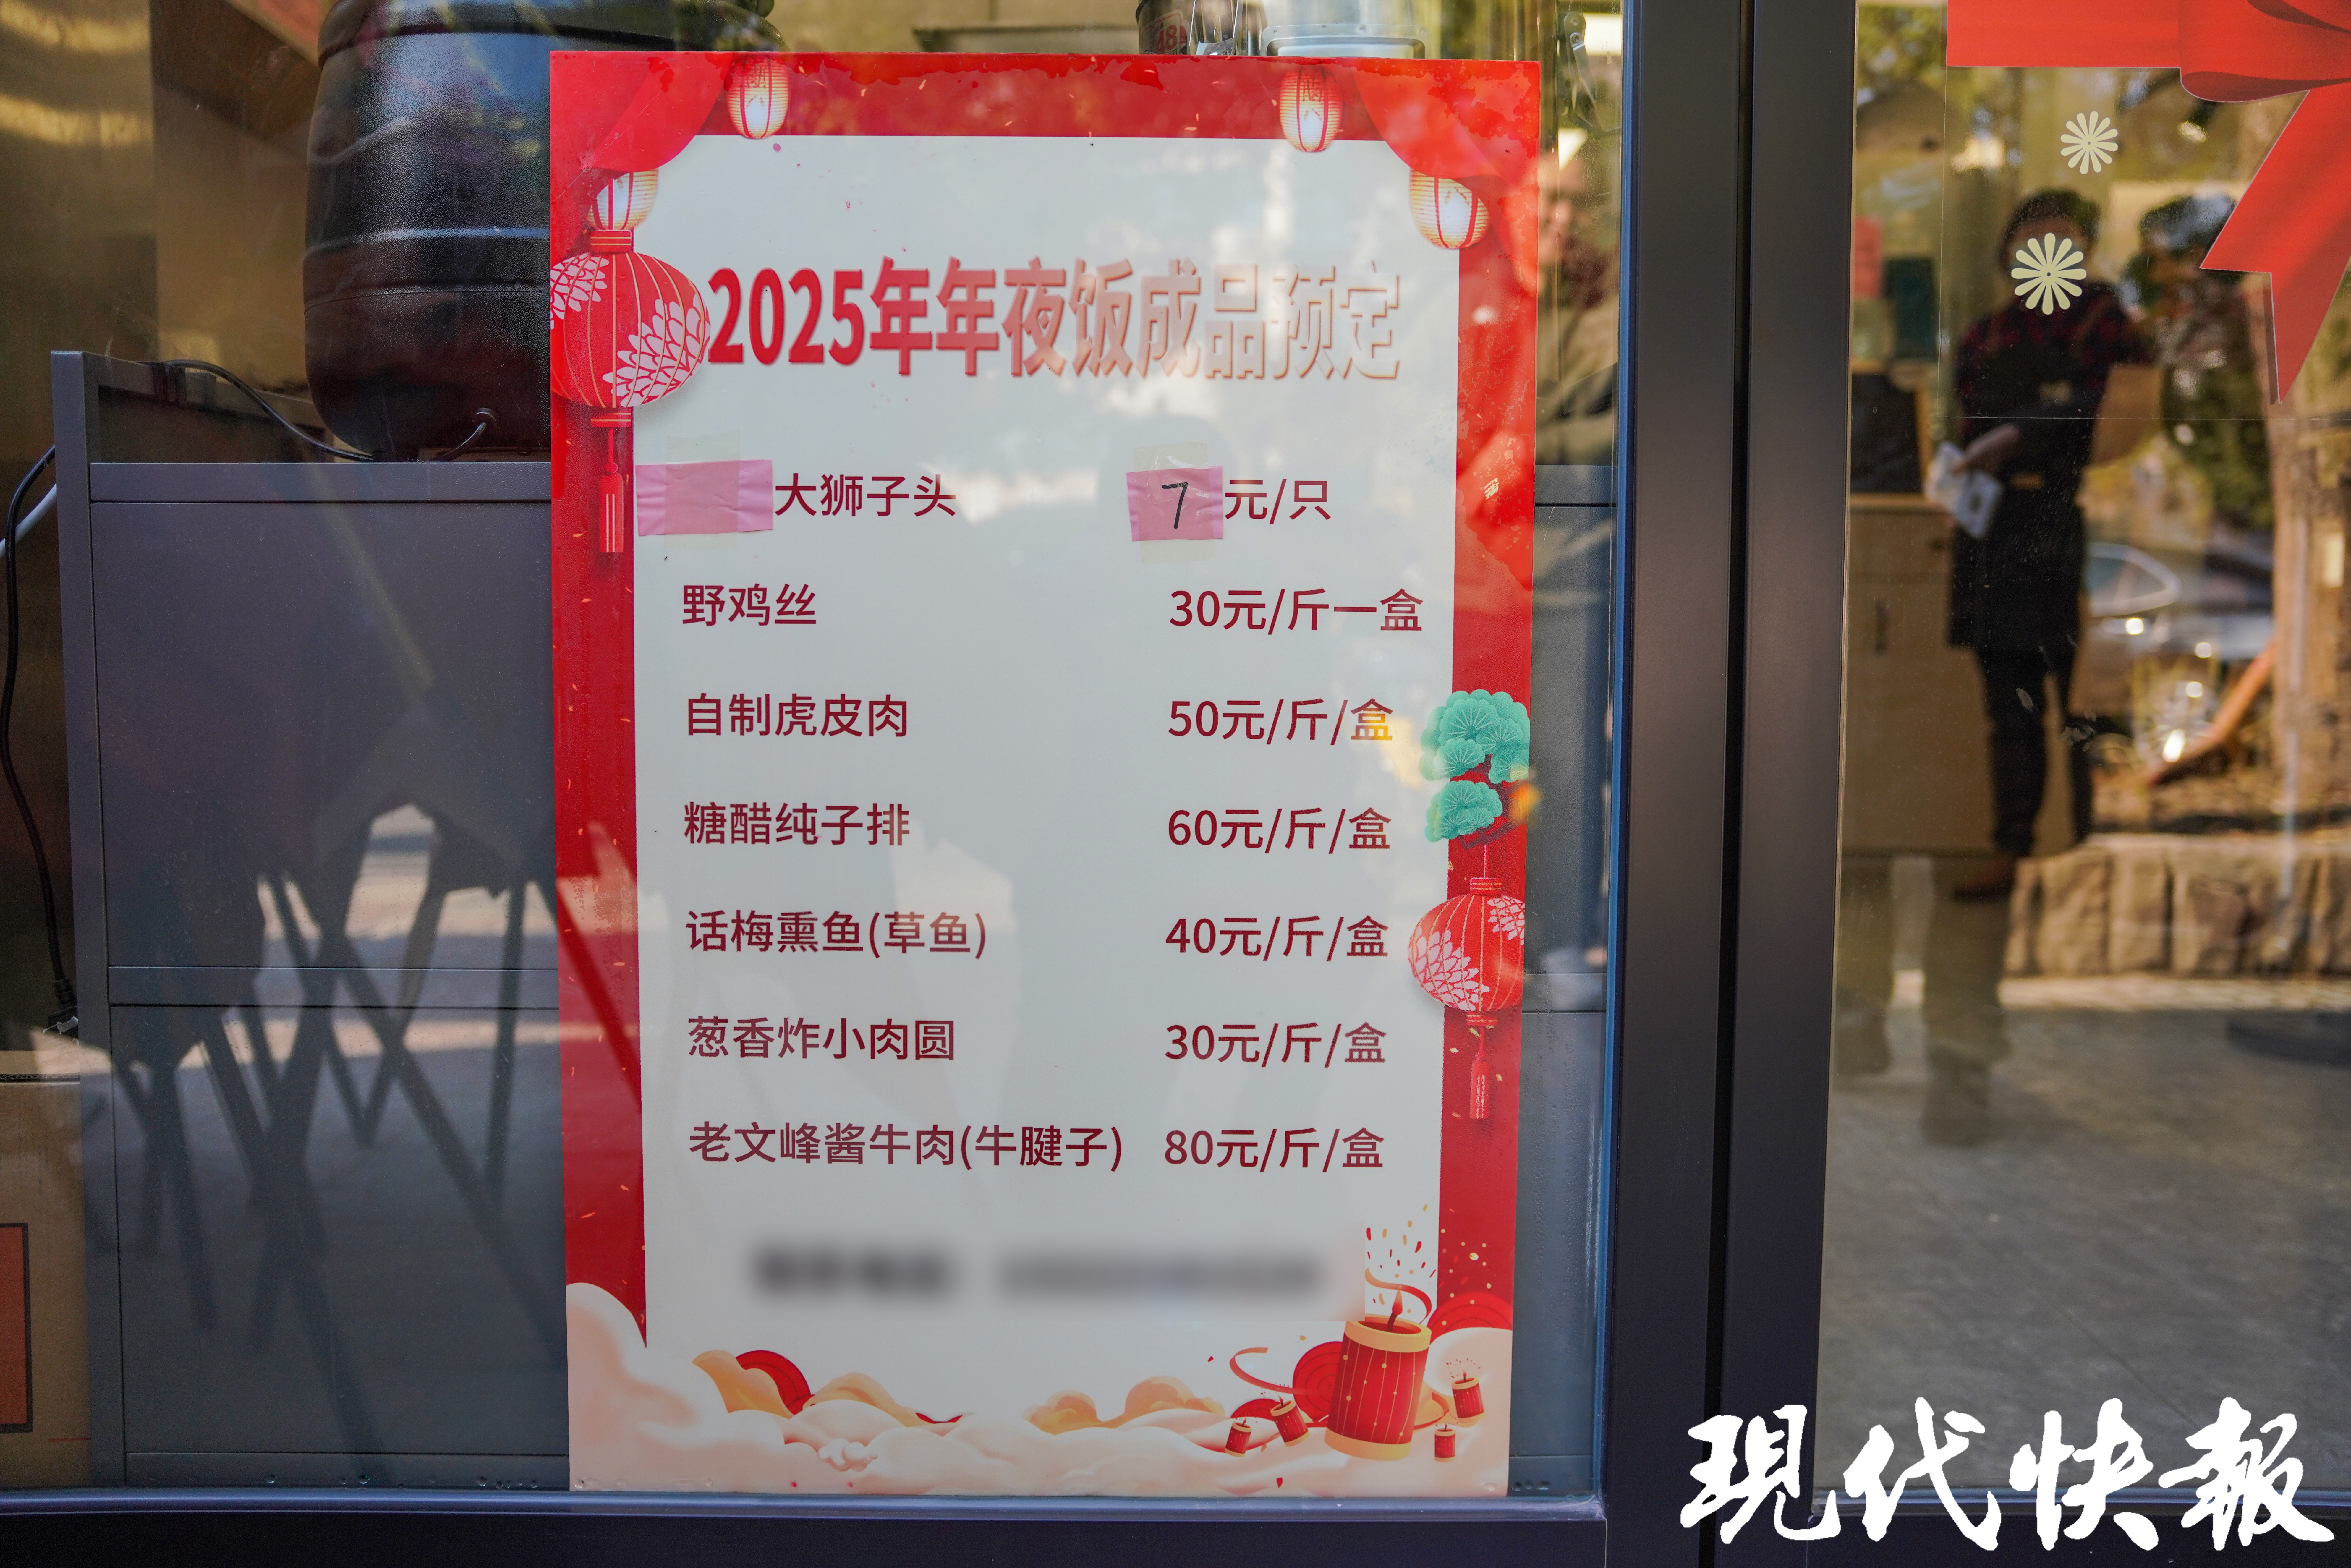 2025年年夜饭成品预定
大狮子头 7元/只
野鸡丝 30元/斤一盒
自制虎皮肉 50元/斤/盒
糖醋纯子排 60元/斤/盒
话梅熏鱼(草鱼) 40元/斤/盒
葱香炸小肉圆 30元/斤/盒
老文峰酱牛肉(牛腱子) 80元/斤/盒
現代快報